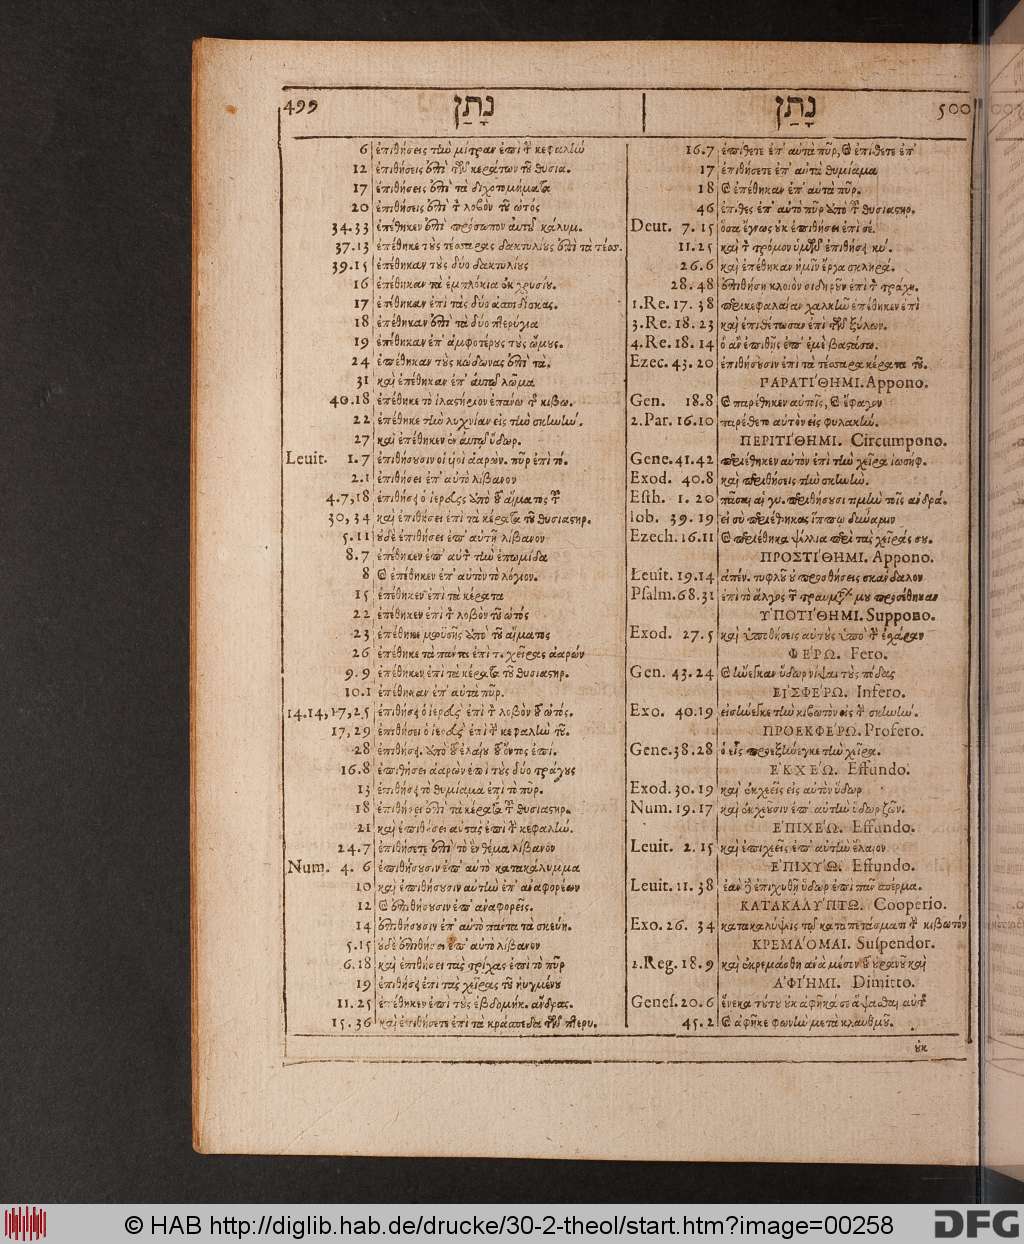 499 נָתַן
6 ἐπιθήσεις τὴν μίτραν ἐπὶ τ̀ κεφαλὴν
12 ἐπιθήσεις ἐπὶ τῶν κεράτων τοῦ θυσια.
17 ἐπιθήσεις ἐπὶ τὰ διχοτομήματα
20 ἐπιθήσεις ἐπὶ τ̀ λοβὸν τοῦ ὠτός
34.33 ἐπέθηκεν ἐπὶ πρόσωπον αὐτοῦ κάλυμ.
37.13 ἐπέθηκε τοὺς τέσσαρας δακτυλίους ἐπὶ τὰ τέσσ.
39.15 ἐπέθηκαν τοὺς δύο δακτυλίους
16 ἐπέθηκαν τὰ ἐμπλόκια ἐκ χρυσίου.
17 ἐπέθηκαν ἐπὶ τὰς δύο ἀσπιδίσκας.
18 ἐπέθηκαν ἐπὶ τὰ δύο πτερύγια
19 ἐπέθηκαν ἐπ' ἀμφοτέρους τοὺς ὤμους.
24 ἐπέθηκαν τοὺς κώδωνας ἐπὶ τὰ.
31 καὶ ἐπέθηκαν ἐπ' αὐτὸ λῶμα
40.18 ἐπέθηκε τὸ ἱλαστήριον ἐπάνω τ̀ κιβω.
22 ἐπέθηκε τὴν λυχνίαν εἰς τὴν σκηνήν.
27 καὶ ἐπέθηκεν ἐν αὐτῷ ὕδωρ.
Leuit. 1.7 ἐπιθήσουσιν οἱ υἱοὶ ἀαρών. πῦρ ἐπὶ τό.
2.1 ἐπιθήσει ἐπ' αὐτὸ λίβανον
4.7,18 ἐπιθήσει ὁ ἱερεὺς ἀπὸ τοῦ αἵματος ἐπὶ
30,34 καὶ ἐπιθήσει ἐπὶ τὰ κέρατα τοῦ θυσιαστηρ.
5.11 οὐδὲ ἐπιθήσει ἐπ' αὐτῇ λίβανον
8.7 ἐπέθηκεν ἐπ' αὐτ̀ τὴν ἐπωμίδα
8 καὶ ἐπέθηκεν ἐπ' αὐτὸν τὸ λόγιον.
15 ἐπέθηκεν ἐπὶ τὰ κέρατα
22 ἐπέθηκεν ἐπὶ τ̀ λοβὸν τοῦ ὠτός
23 ἐπέθηκε μωϋσῆς ἀπὸ τοῦ αἵματος
26 ἐπέθηκε τὰ πάντα ἐπὶ τ. χεῖρας ἀαρών
9.9 ἐπέθηκεν ἐπὶ τὰ κέρατα τοῦ θυσιαστηρ.
10.1 ἐπέθηκαν ἐπ' αὐτὰ πῦρ.
14.14,17,25 ἐπιθήσει ὁ ἱερεὺς ἐπὶ τ̀ λοβὸν τοῦ ὠτός.
17,29 ἐπιθήσει ὁ ἱερεὺς ἐπὶ τ̀ κεφαλὴν τοῦ.
28 ἐπιθήσει. ἀπὸ τοῦ ἐλαίου τοῦ ὄντος ἐπί.
16.8 ἐπιθήσει ἀαρὼν ἐπὶ τοὺς δύο τράγους
13 ἐπιθήσει τὸ θυμίαμα ἐπὶ τὸ πῦρ.
18 ἐπιθήσει ἐπὶ τὰ κέρατα τ̀ θυσιαστηρ.
21 καὶ ἐπιθήσει αὐτὰς ἐπὶ τ̀ κεφαλήν.
24.7 ἐπιθήσετε ἐπὶ τὸ ἓν θέμα λίβανον
Num. 4.6 ἐπιθήσουσιν ἐπ' αὐτὸ κατακάλυμμα
10 καὶ ἐπιθήσουσιν αὐτὴν ἐπ' ἀναφορέων
12 καὶ ἐπιθήσουσιν ἐπ' ἀναφορεῖς.
14 ἐπιθήσουσιν ἐπ' αὐτὸ πάντα τὰ σκεύη.
5.15 οὐδὲ ἐπιθήσει ἐπ' αὐτὸ λίβανον
6.18 καὶ ἐπιθήσει τὰς τρίχας ἐπὶ τὸ πῦρ
19 ἐπιθήσει ἐπὶ τὰς χεῖρας τοῦ ηὐγμένου
11.25 ἐπέθηκεν ἐπὶ τοὺς ἑβδομήκ. ἄνδρας.
15.36 καὶ ἐπιθήσετε ἐπὶ τὰ κράσπεδα τῶν πτερυ.
נָתַן 500
16.7 ἐπίθετε ἐπ' αὐτὰ πῦρ, καὶ ἐπίθετε ἐπ'
17 ἐπιθήσετε ἐπ' αὐτὰ θυμίαμα
18 καὶ ἐπέθηκαν ἐπ' αὐτὰ πῦρ.
46 ἐπίθες ἐπ' αὐτὸ πῦρ ἀπὸ τοῦ θυσιαστηρ.
Deut. 7.15 ὅσα ἔγνως οὐκ ἐπιθήσει ἐπὶ σέ.
11.25 καὶ τ̀ τρόμον ὑμῶν ἐπιθήσει κύ.
26.6 καὶ ἐπέθηκαν ἡμῖν ἔργα σκληρά.
28.48 ἐπιθήσει κλοιὸν σιδηροῦν ἐπὶ τ̀ τράχη.
1.Re. 17.38 περικεφαλαίαν χαλκῆν ἐπέθηκεν ἐπὶ
3.Re. 18.23 καὶ ἐπιθέτωσαν ἐπὶ τῶν ξύλων.
4.Re. 18.14 ὃ ἂν ἐπιθῇς ἐπ' ἐμὲ βαστάσω.
Ezec. 43.20 ἐπιθήσουσιν ἐπὶ τὰ τέσσαρα κέρατα τοῦ.
ΠΑΡΑΤΙΘΗΜΙ. Appono.
Gen. 18.8 καὶ παρέθηκεν αὐτοῖς, καὶ ἔφαγον
2.Par. 16.10 παρέθετο αὐτὸν εἰς φυλακήν.
ΠΕΡΙΤΙΘΗΜΙ. Circumpono.
Gene. 41.42 περιέθηκεν αὐτὸν ἐπὶ τὴν χεῖρα ἰωσήφ.
Exod. 40.8 καὶ περιθήσεις τὴν σκηνήν.
Esth. 1.20 πᾶσαι αἱ γυ. περιθήσουσι τιμὴν τοῖς ἀνδρά.
Iob. 39.19 εἰ σὺ περιέθηκας ἵππῳ δύναμιν
Ezech. 16.11 καὶ περιέθηκα ψέλλια περὶ τὰς χεῖράς σου.
ΠΡΟΣΤΙΘΗΜΙ. Appono.
Leuit. 19.14 ἀπέν. τυφλοῦ οὐ προσθήσεις σκάνδαλον
Psalm. 68.31 ἐπὶ τὸ ἄλγος τ̀ τραυμάτων μου προσέθηκαν
ΥΠΟΤΙΘΗΜΙ. Suppono.
Exod. 27.5 καὶ ὑποθήσεις αὐτοὺς ὑπὸ τ̀ ἐσχάραν
ΦΕΡΩ. Fero.
Gen. 43.24 καὶ ἤνεγκαν ὕδωρ νίψαι τοὺς πόδας
ΕΙΣΦΕΡΩ. Infero.
Exo. 40.19 εἰσήνεγκε τὴν κιβωτὸν εἰς τ̀ σκηνήν.
ΠΡΟΕΚΦΕΡΩ. Profero.
Gene. 38.28 ὁ εἷς προεξήνεγκε τὴν χεῖρα.
ΕΚΧΕΩ. Effundo.
Exod. 30.19 καὶ ἐκχεεῖς εἰς αὐτὸν ὕδωρ
Num. 19.17 καὶ ἐκχεοῦσιν ἐπ' αὐτὴν ὕδωρ ζῶν.
ΕΠΙΧΕΩ. Effundo.
Leuit. 2.15 καὶ ἐπιχεεῖς ἐπ' αὐτὴν ἔλαιον
ΕΠΙΧΥΩ. Effundo.
Leuit. 11.38 ἐὰν δὲ ἐπιχυθῇ ὕδωρ ἐπὶ πᾶν σπέρμα.
ΚΑΤΑΚΑΛΥΠΤΩ. Cooperio.
Exo. 26.34 κατακαλύψεις τῷ καταπετάσματι τ̀ κιβωτόν
ΚΡΕΜΑΟΜΑΙ. Suspendor.
2.Reg. 18.9 καὶ ἐκρεμάσθη ἀνὰ μέσον τοῦ οὐρανοῦ καὶ
ΑΦΙΗΜΙ. Dimitto.
Genes. 20.6 ἕνεκα τούτου οὐκ ἀφῆκά σε ἅψασθαι αὐτ̀
45.2 καὶ ἀφῆκε φωνὴν μετὰ κλαυθμοῦ.
οὐκ
© HAB http://diglib.hab.de/drucke/30-2-theol/start.htm?image=00258
DFG